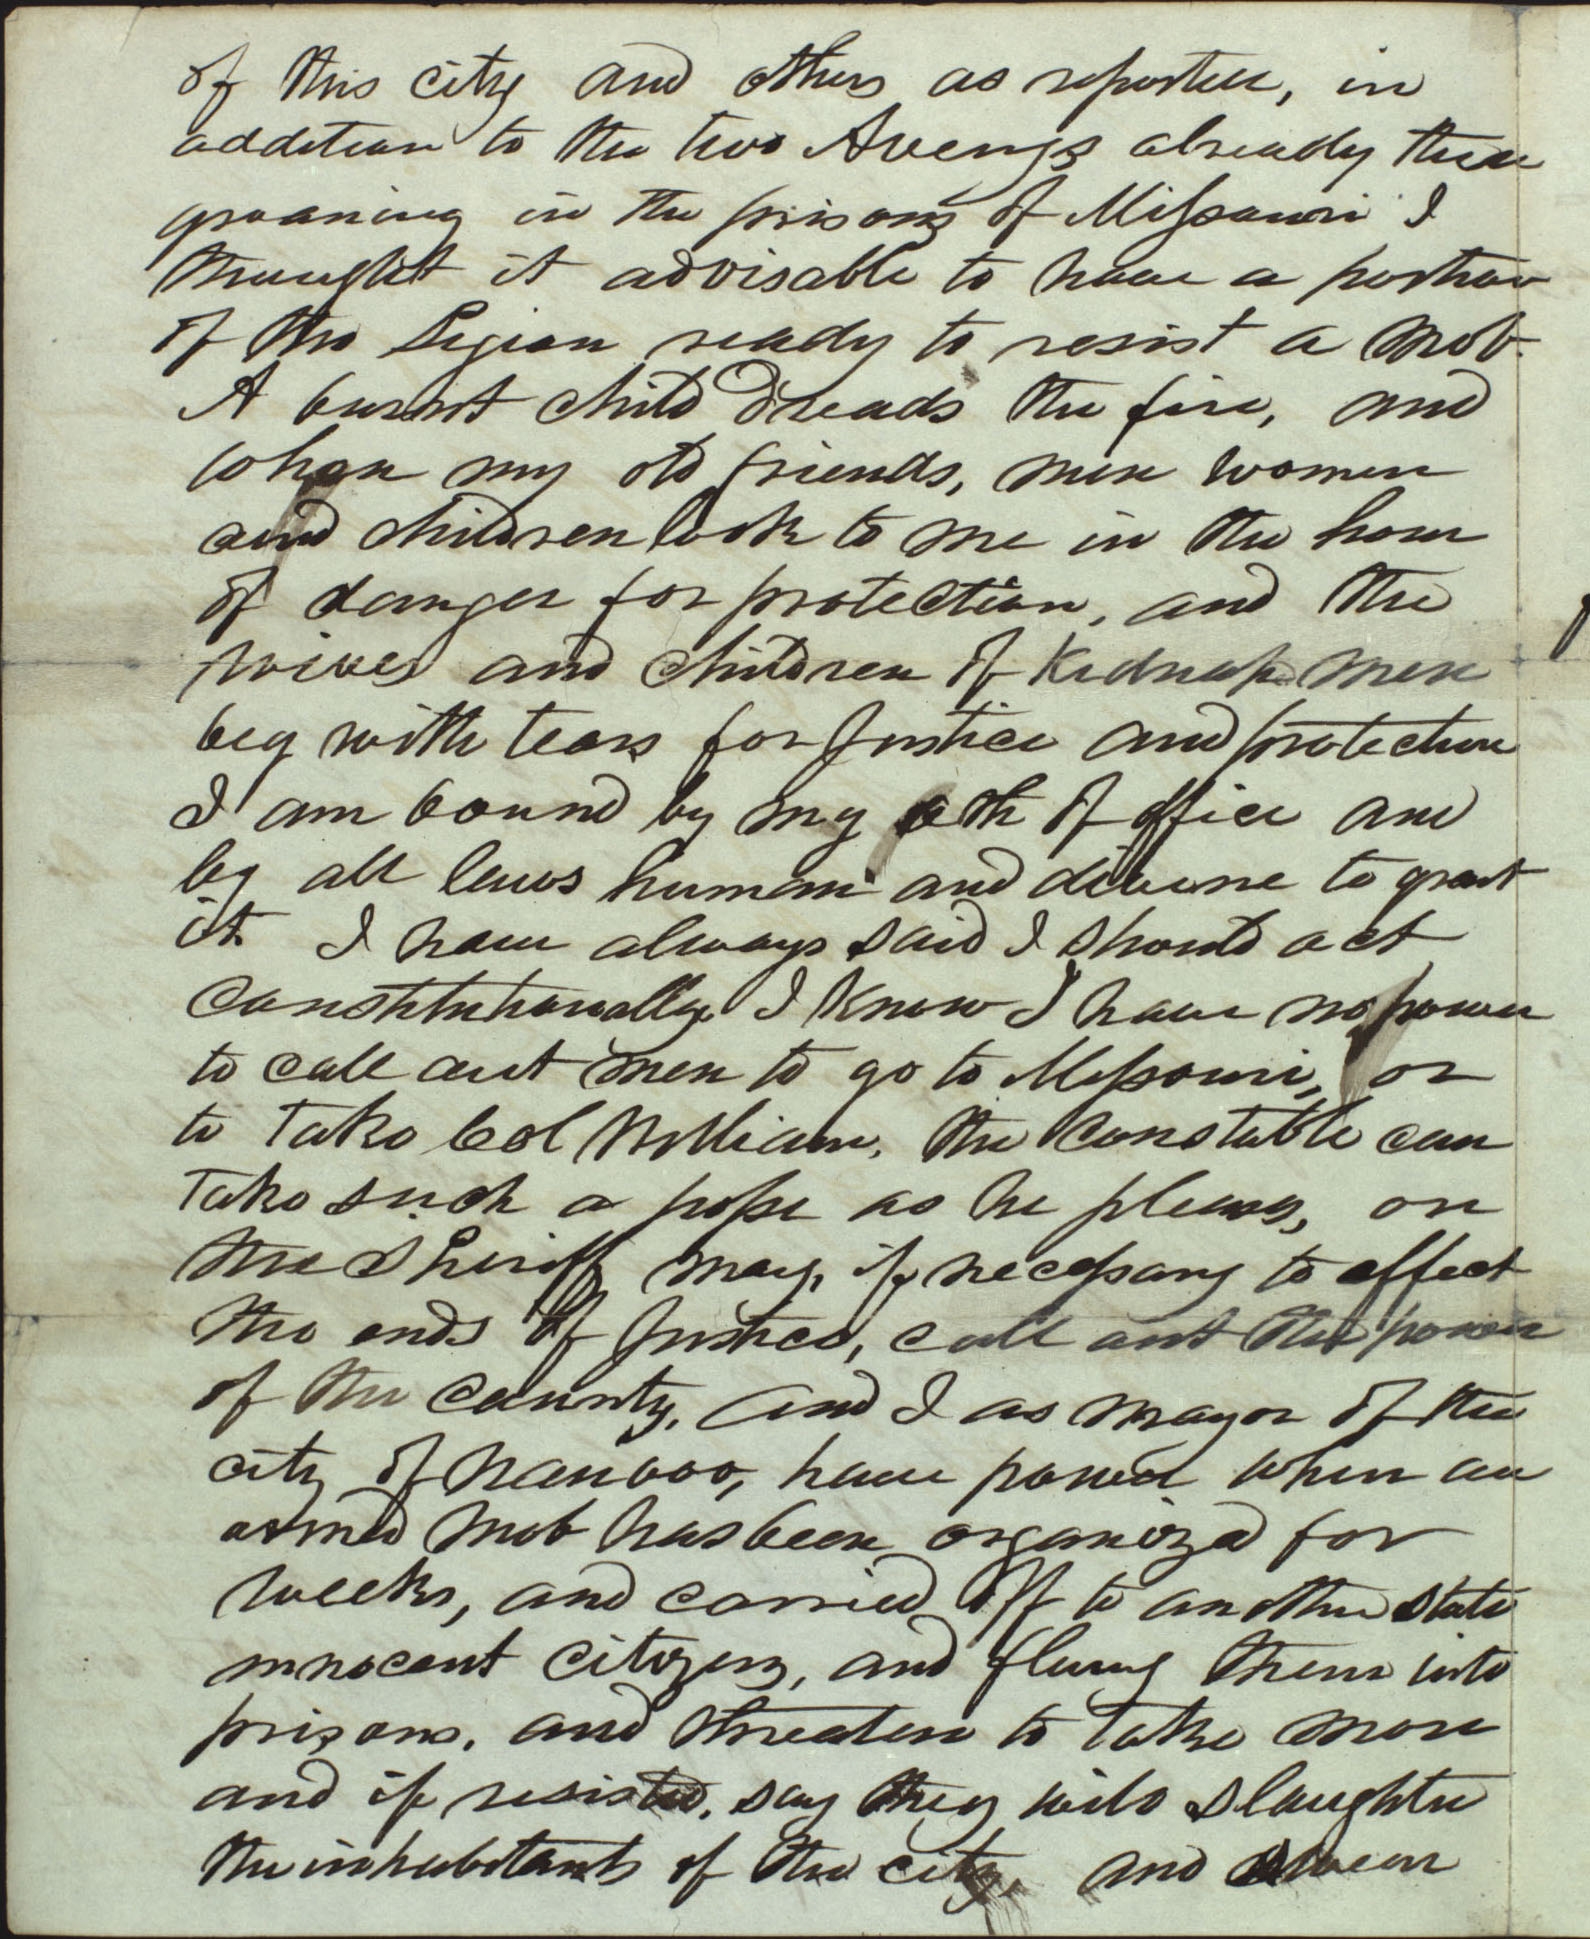 of this city and others as reported, in
addition to the two Averys already there
groaning in the prisons of Missouri I
thought it advisable to have a portion
of the Legion ready to resist a mob.
A burnt child dreads the fire, and
when my old friends, men women
and children look to me in the hour
of danger for protection, and the
wives and children of Kidnap men
beg with tears for Justice and protection
I am bound by my oath of office and
by all laws human and divine to grant
it. I have always said I should act
constitutionally. I know I have no power
to call out men to go to Missouri, or
to take Col William, the constable can
take such a posse as he pleases, or
the Sheriff may, if necessary to effect
the ends of Justice, call out the power
of the county, and I as mayor of the
city of Nauvoo, have power when an
armed mob has been organized for
weeks, and carried off to another state
innocent citizens, and flung them into
prisons, and threaten to take more
and if resisted, say they will slaughter
the inhabitants of the city, and swear